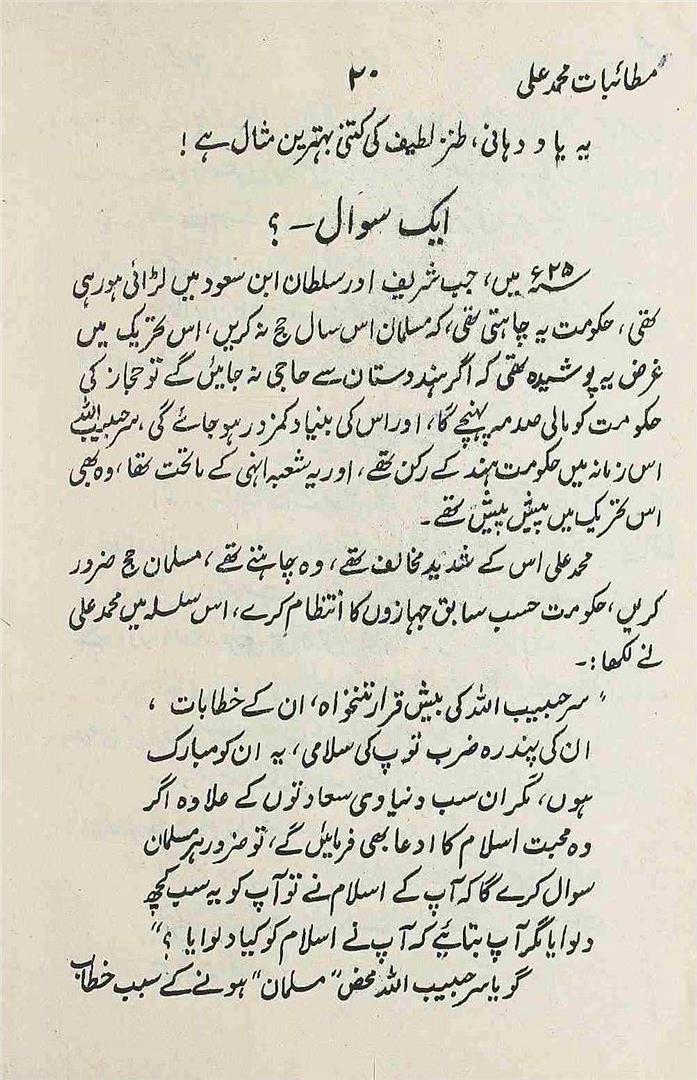 مطائبات محمد علی ۲۰
یہ یاد دہانی، طنز لطیف کی کتنی بہترین مثال ہے !
ایک سوال ۔ ؟
۲۵؁ء میں، جب شریف اور سلطان ابن سعود میں لڑائی ہو رہی
تھی، حکومت یہ چاہتی تھی، کہ مسلمان اس سال حج نہ کریں، اس تحریک میں
غرض یہ پوشیدہ تھی کہ اگر ہندوستان سے حاجی نہ جائیں گے تو حجاز کی
حکومت کو مالی صدمہ پہنچے گا، اور اس کی بنیاد کمزور ہو جائے گی، سر حبیب اللہ
اس زمانہ میں حکومت ہند کے رکن تھے، اور یہ شعبہ انہی کے ماتحت تھا، وہ بھی
اس تحریک میں پیش پیش تھے۔
محمد علی اس کے شدید مخالف تھے، وہ چاہتے تھے، مسلمان حج ضرور
کریں، حکومت حسب سابق جہازوں کا انتظام کرے، اس سلسلہ میں محمد علی
نے لکھا:۔
"سر حبیب اللہ کی بیش قرار تنخواہ، ان کے خطابات ،
ان کی پندرہ ضرب توپ کی سلامی، یہ ان کو مبارک
ہوں، مگر ان سب دنیاوی سعادتوں کے علاوہ اگر
وہ محبت اسلام کا ادعا بھی فرمائیں گے، تو ضرور ہر مسلمان
سوال کرے گا کہ آپ کے اسلام نے تو آپ کو یہ سب کچھ
دلوایا مگر آپ بتائیے کہ آپ نے اسلام کو کیا دلوایا ؟"
گویا سر حبیب اللہ محض "مسلمان" ہونے کے سبب خطاب